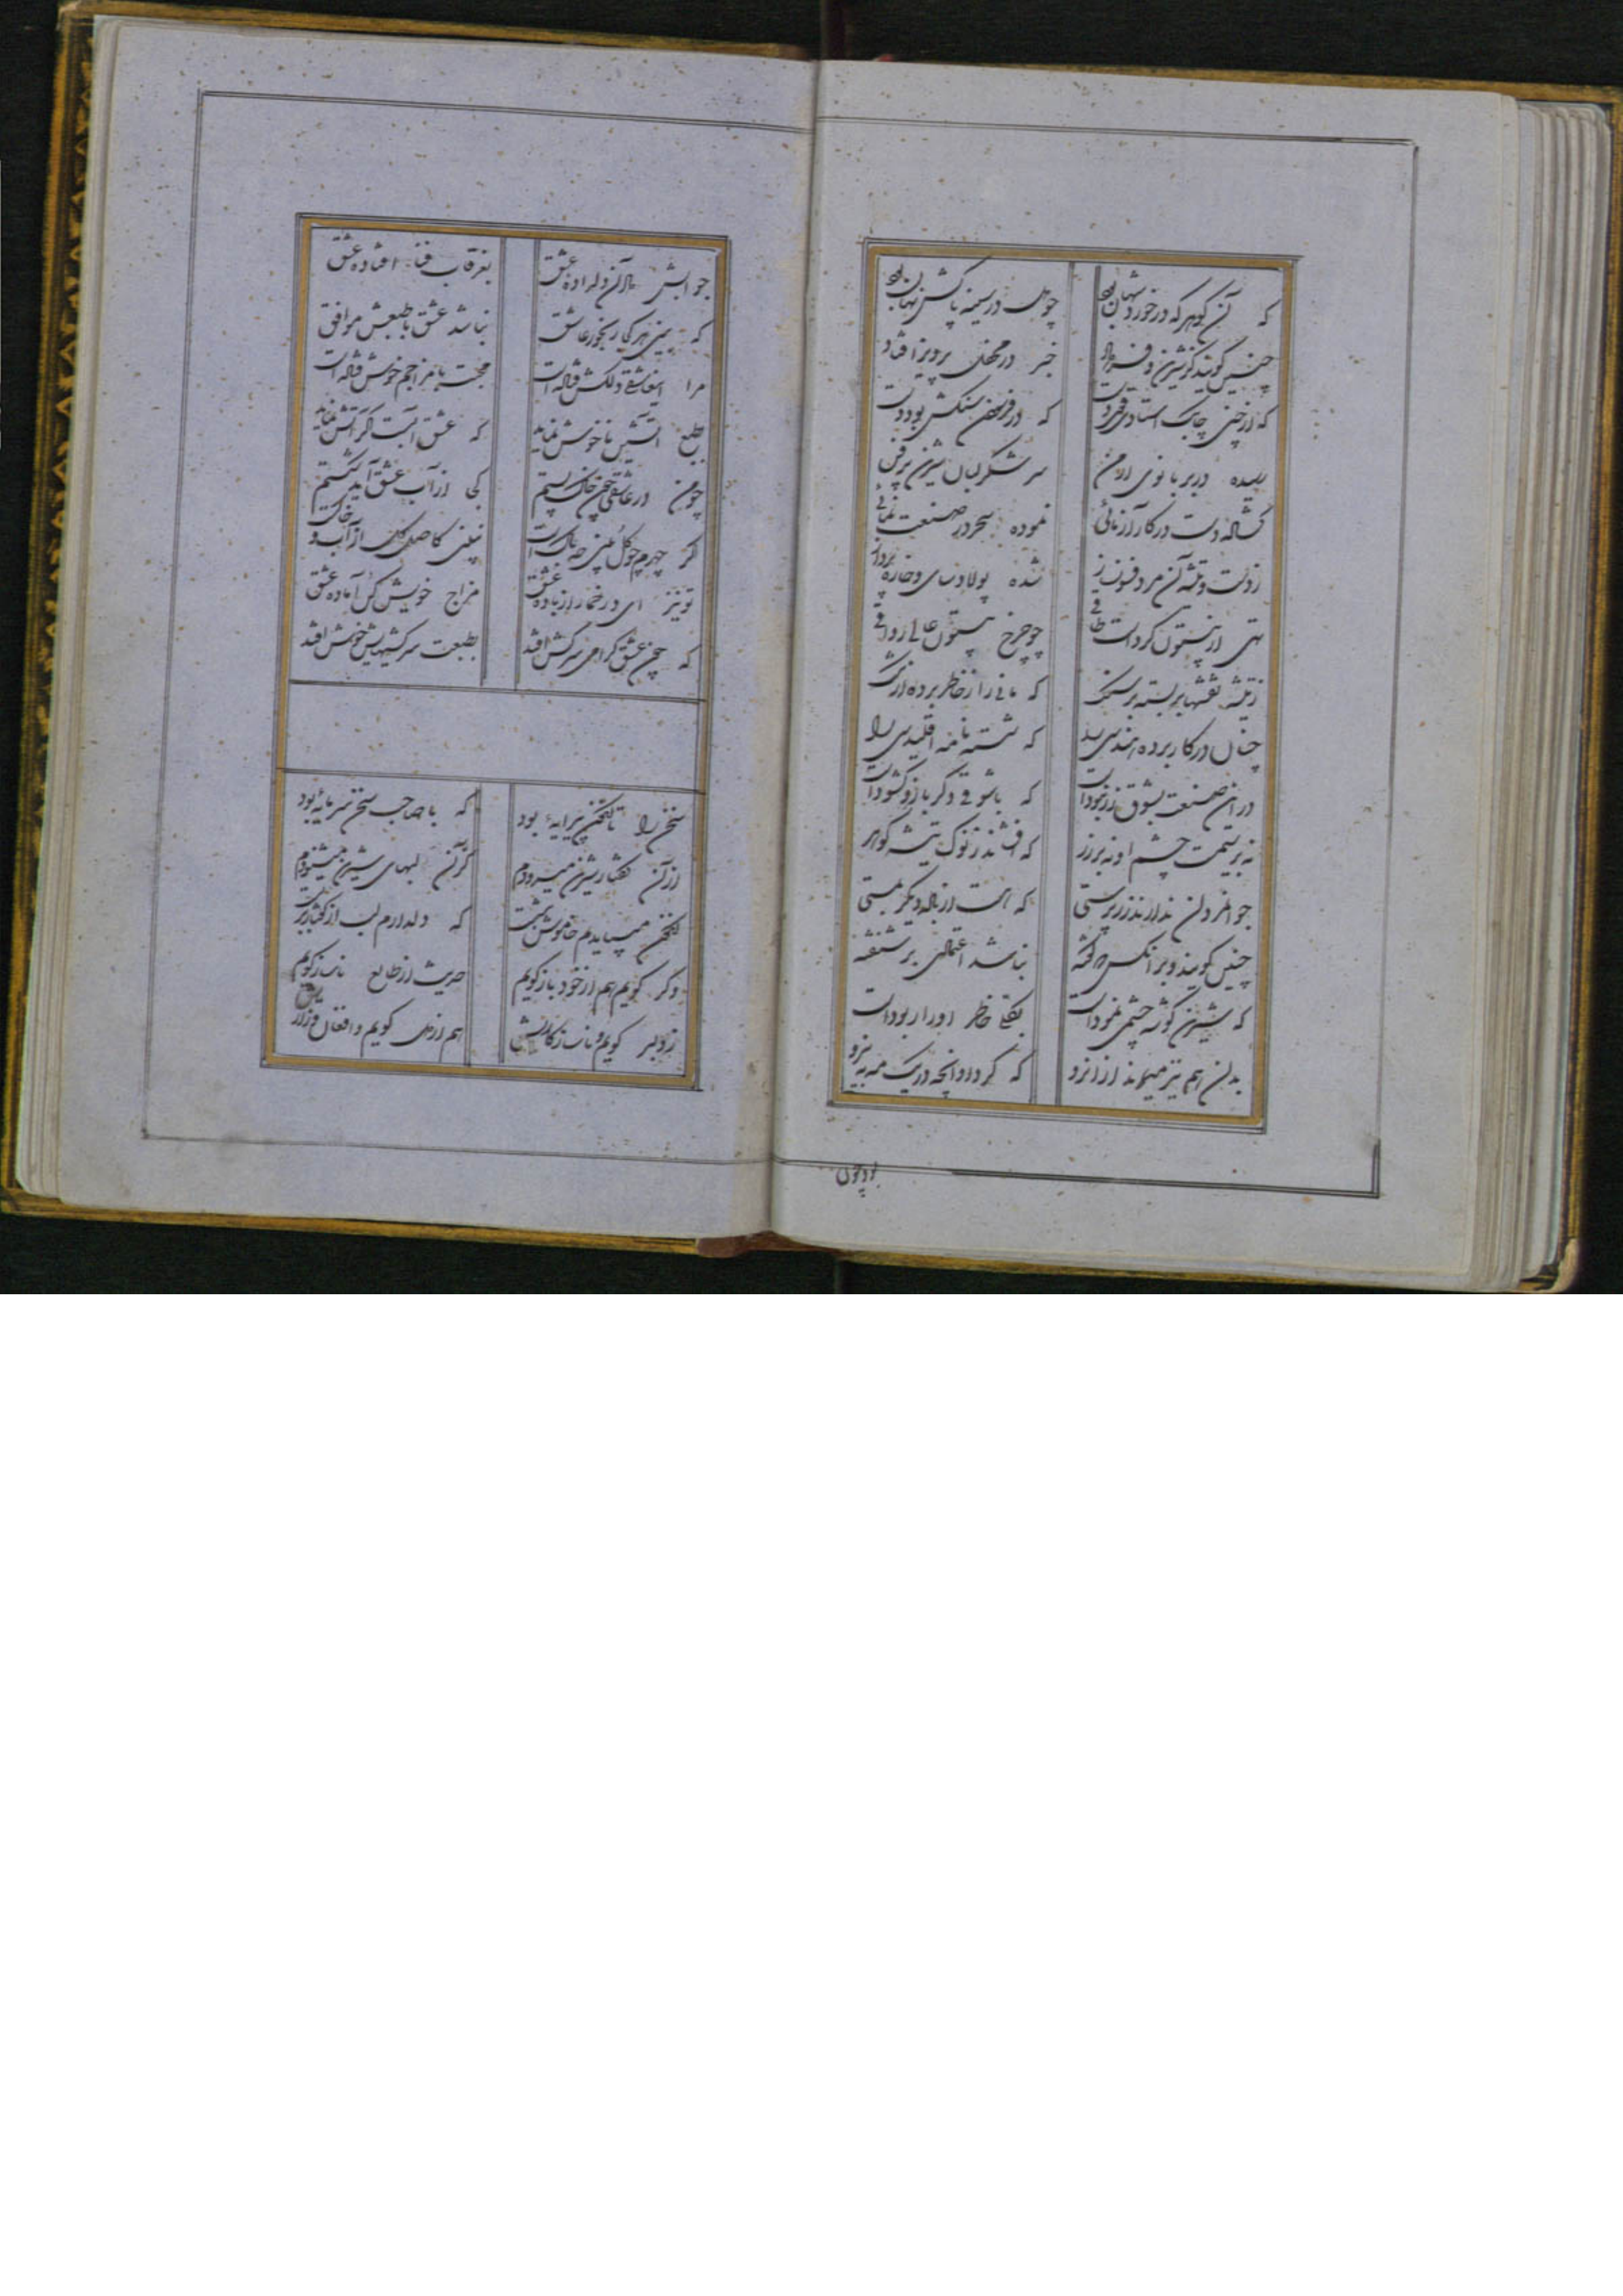 که آن گوهر که در خورد شهان بود چو در سینه پاکش نهان بود
چنین گویند کز شیرین و فرهاد خبر در محفل پرویز افتاد
که از چین چابک استادی
رسیده در بر بانوی ارمن سر شکر لبان شیرین پرفن
گشاده دست در کار آزمائی نموده سحر در صنعت نمائی
ز دست و تیشه آن مرد فسون ساز شده پولاد سای و خاره پرداز
تهی از بیستون کرداست طاقی چو چرخ بیستون عالی رواقی
ز تیشه نقشها بر بسته بر سنگ که مانی را ز خاطر برده ارژنگ
چنان در کار برده هندسی را که شسته نامه اقلیدسی را
در آن صنعت بشوق زر نبوداست که با شوقی دگر بازو گشوداست
نه بر سیمست چشم او نه بر زر که افشاند ز نوک تیشه گوهر
جوانمردان ندارند زر پرستی که هست از باده دیگر مستی
چنین گویند و بر آنکس که گفته نباشد اعتمادی بر شنفته
که شیرین گوشه چشمی نموداست بکلی خاطر او را ربوداست
بدان هم نیز میماند از آنرو که کرد او آنچه در یک مه به نیرو
بود چون
جوابش داد آن دلداده عشق بغرقاب فنا افتاده عشق
که بینی هر کجا رنجور عاشق نباشد عشق با طبعش موافق
مرا این عاشقی دلکش فتاده است محبت با مزاجم خوش فتاده است
بطبع آتشین ناخوش نماید که عشق آبست گر آتش نماید
چو من در عاشقی چون خاک پستم کی از آب عشق آید شکستم
اگر چهرم چو گل بینی چه باک است نبینی کاصل گل از آب و خاک است
تو نیز ای در خمار از باده عشق مزاج خویش کن آماده عشق
که چون عشق گرامی سرکش افتد بطبعت سرکشیهایش خوش افتد
سخن را تا بگفتن پیرایه بود که با صاحب سخن سرمایه بود
از آن گفتار شیرین میسرودم کز آن لبهای شیرین میشنودم
بگفتن میسپاریدم خاموش بنشست که دلدارم لب از گفتار بربست
وگر گویم هم از خود باز گویم حدیث از طالع ناساز گویم
ز دلبر گویم و ناسازگاریش هم از دل گویم و افغان و زاریش